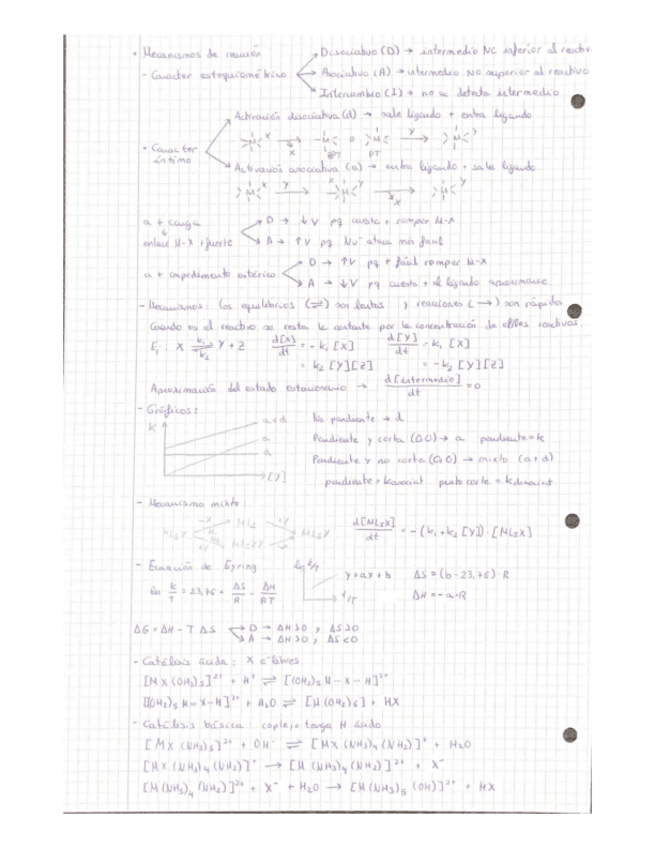 • Mecanismos de reacción
Disociativo (D) → intermedio NC inferior al reactivo
- Caracter estequiométrico
Asociativo (A) → intermedio NC superior al reactivo
Intercambio (I) → no se detecta intermedio
Activación disociativa (d) → sale ligando + entra ligando
- Caracter íntimo
Activación asociativa (a) → entra ligando + sale ligando
a + carga
enlace M-X + fuerte
D → ↓V pq cuesta + romper M-X
A → ↑V pq Nu⁻ ataca más fácil
a + impedimento estérico
D → ↑V pq + fácil romper M-X
A → ↓V pq cuesta + el ligando aproximarse
- Mecanismos: los equilibrios (⇌) son lentos y reacciones (→) son rápidas
Cuando es el reactivo se resta la constante por la concentración de reactivos.
Ej: X ⇌ Y + Z k₁ k₂ d[X]/dt = - k₁ [X] d[Y]/dt = k₁ [X]
= k₂ [Y][Z] = - k₂ [Y][Z]
Aproximación del estado estacionario → d[intermedio]/dt = 0
- Gráficos:
k a+d a d [Y]
No pendiente → d
Pendiente y corta (0,0) → a pendiente = k
Pendiente y no corta (0,0) → mixto (a+d)
pendiente = kasociat punto corte = kdisociat
- Mecanismo mixto:
ML₅X -X ML₅ +Y ML₅Y
+Y ML₅XY -X
d[ML₅X]/dt = - (k₁ + k₂ [Y]) · [ML₅X]
- Ecuación de Eyring
ln k/T = 23,76 + ΔS/R - ΔH/RT
ln k/T 1/T y = ax + b
ΔS = (b - 23,76) · R
ΔH = -a · R
ΔG = ΔH - T ΔS
D → ΔH>0 y ΔS>0
A → ΔH>0, ΔS<0
- Catálisis ácida: X e⁻ libres
[MX(OH₂)₅]²⁺ + H⁺ ⇌ [(OH₂)₅M-X-H]³⁺
[(OH₂)₅M-X-H]³⁺ + H₂O ⇌ [M(OH₂)₆] + HX
- Catálisis básica: complejo tenga H ácido
[MX(NH₃)₅]²⁺ + OH⁻ ⇌ [MX(NH₃)₄(NH₂)]⁺ + H₂O
[MX(NH₃)₄(NH₂)]⁺ → [M(NH₃)₄(NH₂)]²⁺ + X⁻
[M(NH₃)₄(NH₂)]²⁺ + X⁻ + H₂O → [M(NH₃)₅(OH)]²⁺ + HX